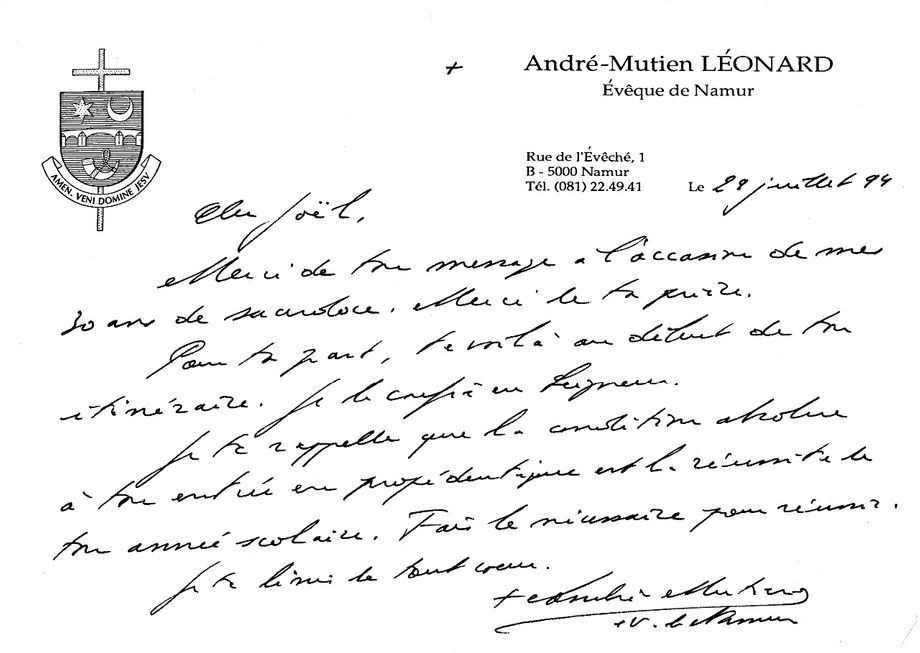 AMEN. VENI DOMINE JESV
+ André-Mutien LÉONARD
Évêque de Namur
Rue de l'Évêché, 1
B - 5000 Namur
Tél. (081) 22.49.41
Le 29 juillet 94
Cher Joël,
Merci de ton message à l'occasion de mes
30 ans de sacerdoce. Merci de ta prière.
Pour ta part, te voilà au début de ton
itinéraire. Je le confie au Seigneur.
Je te rappelle que la condition absolue
à ton entrée en propédeutique est la réussite de
ton année scolaire. Fais le nécessaire pour réussir.
Je te bénis de tout coeur.
+ André-Mutien
év. de Namur